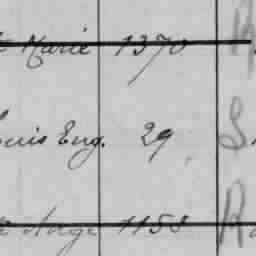 Marie 1370 R
Louis Eug. 29 S
Ange 1158 R